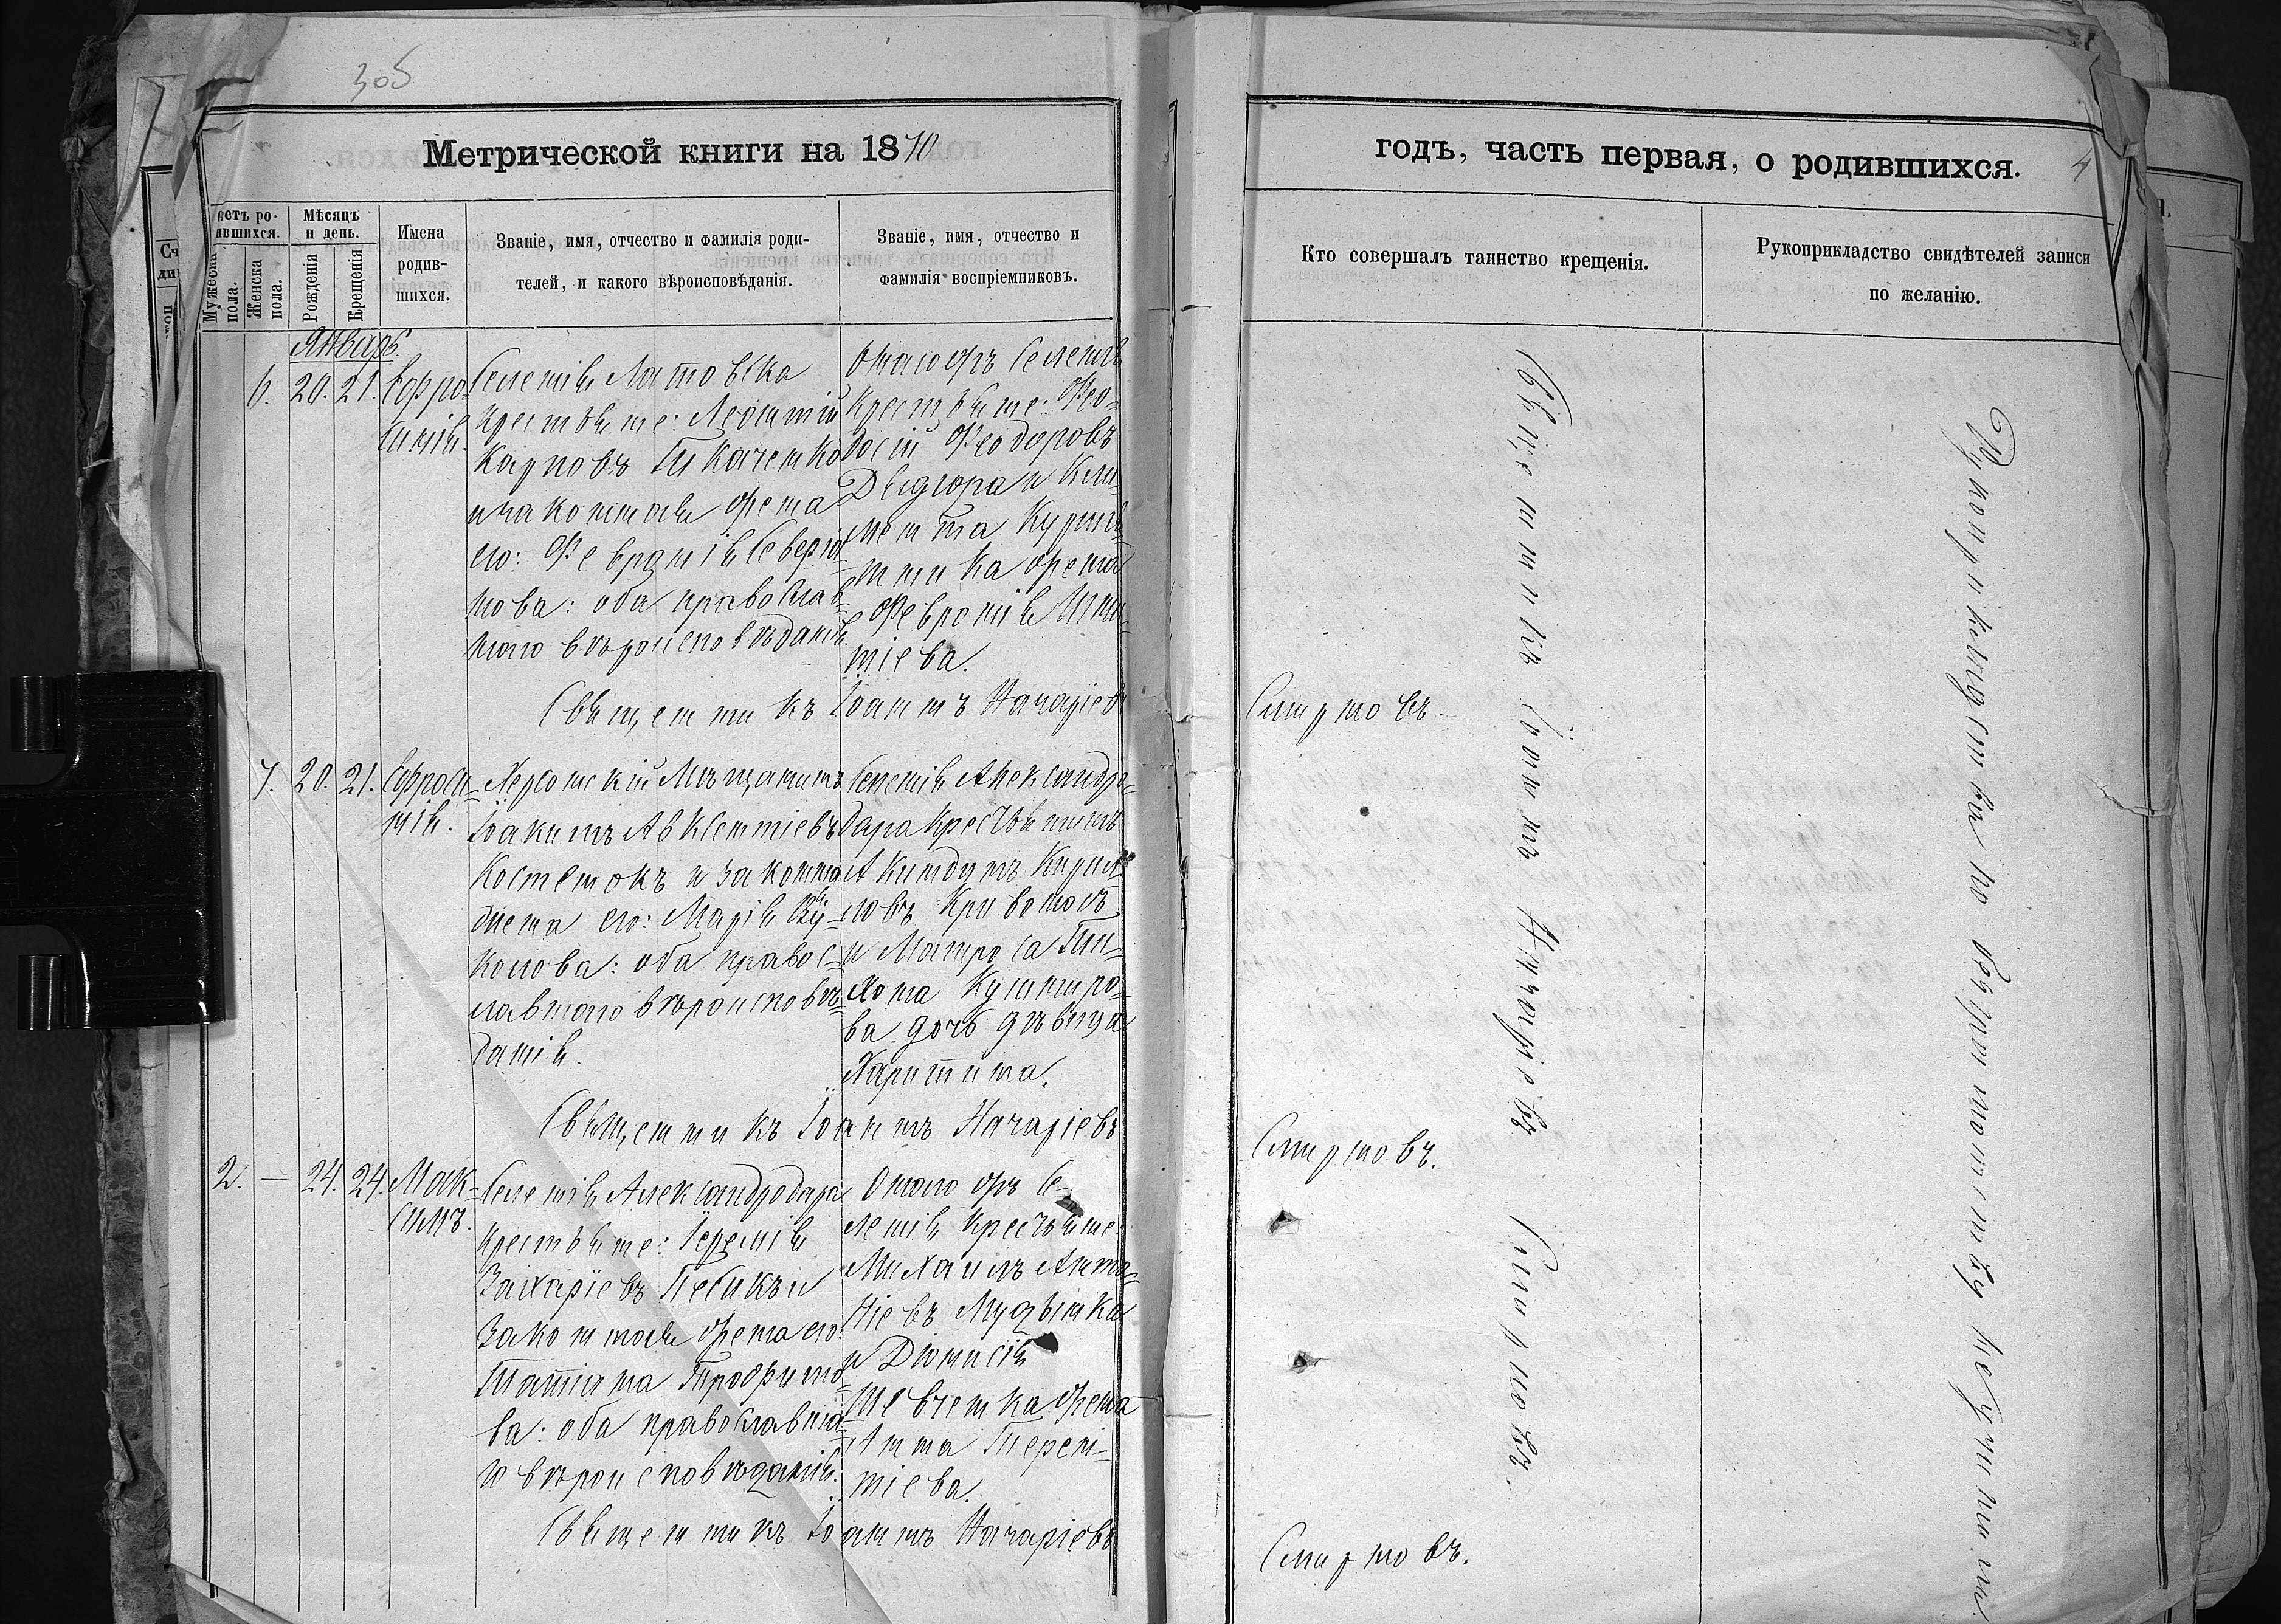 305
Метрической книги на 1870
годъ, часть первая, о родившихся.
4
Счетъ родившихся.
Мужеска пола.
Женска пола.
Мѣсяцъ и день.
Рожденія
Крещенія
Имена
родив-
шихся.
Званіе, имя, отчество и фамилія роди-
телей, и какого вѣроисповѣданія.
Званіе, имя, отчество и
фамилія воспріемниковъ.
Кто совершалъ таинство крещенія.
Рукоприкладство свидѣтелей записи
по желанію.
Январь.
6. 20. 21.
Евфро-
синія.
Селенія Латовска
Крестьяне: Леонтій
Карповъ Ткаченко
и законная жена
его: Февронія Северіа-
нова: оба православ-
ного вѣроисповѣданія.
Селенія
Крестьяне: Фео-
досій Феодоровъ
и Кли-
мента
жена
Февронія Игна-
тіева.
Священникъ Іоаннъ
Смирновъ.
7. 20. 21.
Евфроси-
нія.
Херсонскій Мѣщанинъ
Іоакимъ Авксентіевъ
и законная
жена его: Марія
оба правос-
лавного вѣроисповѣ-
данія.
Селенія Александро-
дара Крестьянинъ
Акиндинъ Кирил-
ловъ Кривоносъ
и Матроса Ти-
хона Кушниро-
ва дочь дѣвица
Харитина.
Священникъ Іоаннъ
Смирновъ.
2. — 24. 24.
Мак-
симъ.
Селенія Александродара
Крестьяне: Іеремія
Захаріевъ и
Законная жена его:
Татіана Трофимо-
ва: оба православна-
го вѣроисповѣданія.
Се-
ленія Крестьяне:
Михаилъ Анто-
ніевъ
и Діонисія
Шевченка жена
Анна Терен-
тіева.
Священникъ Іоаннъ
Смирновъ.
Священникъ Іоаннъ Смирновъ.